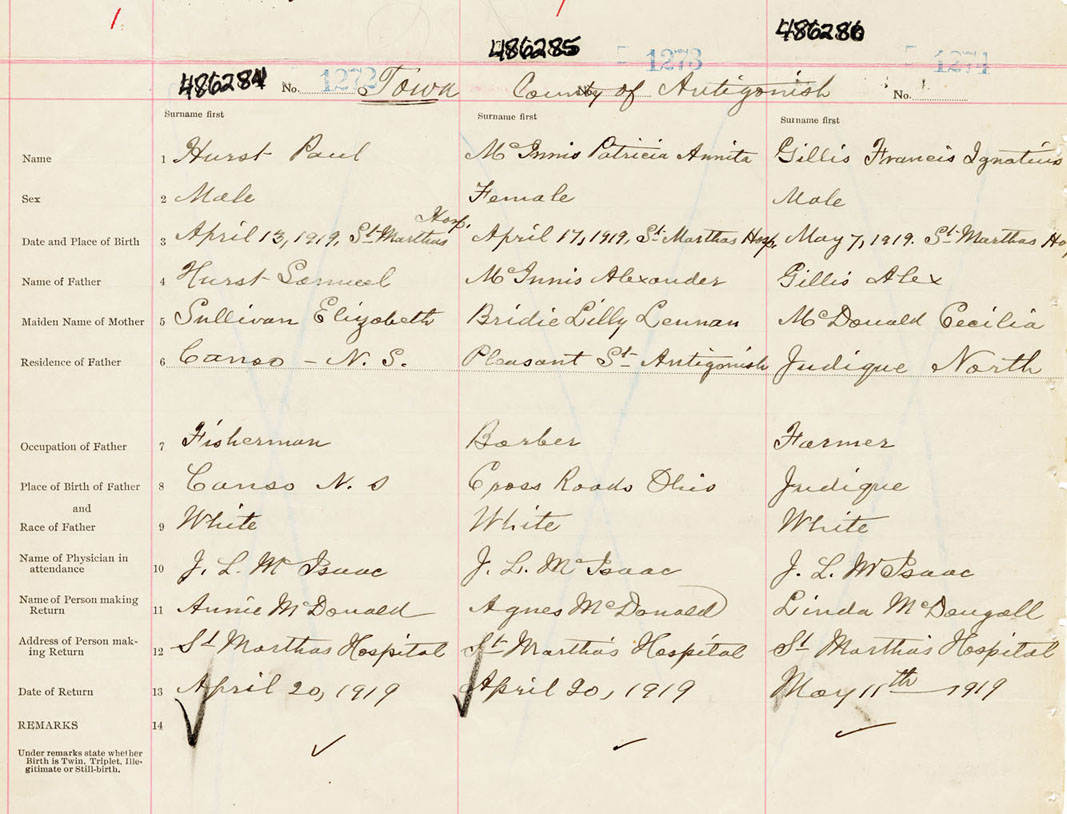 486284 486285 486286
No. 1272 Town County of Antigonish 1273 No. 1274
Surname first Surname first Surname first
Name 1 Hurst Paul McInnis Patricia Annita Gillis Francis Ignatius
Sex 2 Male Female Male
Hosp.
Date and Place of Birth 3 April 13, 1919, St Marthas April 17, 1919, St Marthas Hosp, May 7, 1919. St Marthas Ho
Name of Father 4 Hurst Samuel McInnis Alexander Gillis Alex
Maiden Name of Mother 5 Sullivan Elizabeth Bridie Lilly Lennan McDonald Cecilia
Residence of Father 6 Canso - N. S. Pleasant St Antigonish Judique North
Occupation of Father 7 Fisherman Barber Farmer
Place of Birth of Father 8 Canso N. S Cross Roads Ohio Judique
and
Race of Father 9 White White White
Name of Physician in
attendance 10 J. L. McIsaac J. L. McIsaac J. L. McIsaac
Name of Person making
Return 11 Annie McDonald Agnes McDonald Linda McDougall
Address of Person mak-
ing Return 12 St Marthas Hospital St Martha's Hospital St Martha's Hospital
Date of Return 13 April 20, 1919 April 20, 1919 May 11th 1919
REMARKS 14
Under remarks state whether
Birth is Twin, Triplet, Ille-
gitimate or Still-birth.